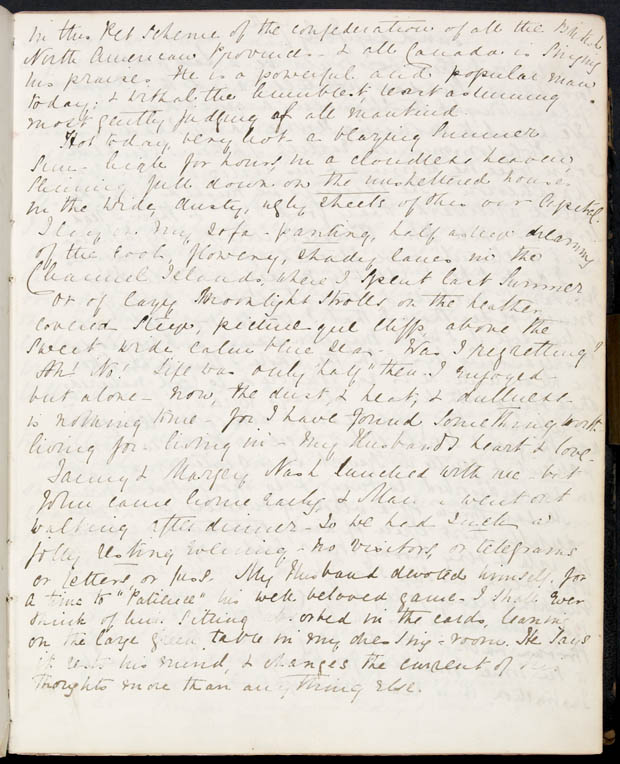 in this Pet Scheme of the confederation of all the British
North American Provinces - & all Canada is Singing
his praises. He is a powerful and popular man
today, & withal the humblest, least assuming
most gently judging of all mankind.
Hot today, very hot - a blazing Summer
Sun - high for hours, in a cloudless heaven,
Shining full down on the unsheltered houses
in the wide, dusty, ugly streets of this our Capital.
I lay on my Sofa - panting, half asleep dreaming
of the cool, flowery, shady lanes in the
Channel Islands, where I Spent last Summer
Or of lazy Moonlight Strolls on the heather
covered Steep, picturesque cliffs, above the
Sweet wide calm blue sea - Was I regretting?
Ah! No! Life was only half then - I enjoyed -
but alone - Now, the dust, & heat, & dullness -
is nothing to me - for I have found Something worth
living for - living in - my Husband's heart & love -
Fanny & Margey Nash lunched with me - but
John came home early & Mama went out
walking after dinner - So we had Such a
jolly resting evening - no visitors, or telegrams
or letters or fuss. My Husband devoted himself for
a time to "Patience" his well beloved game - I Shall ever
think of him Sitting absorbed in the cards, leaning
on the large green table in my dressing-room. He Says
it rests his mind & changes the current of his
thoughts more than anything else.